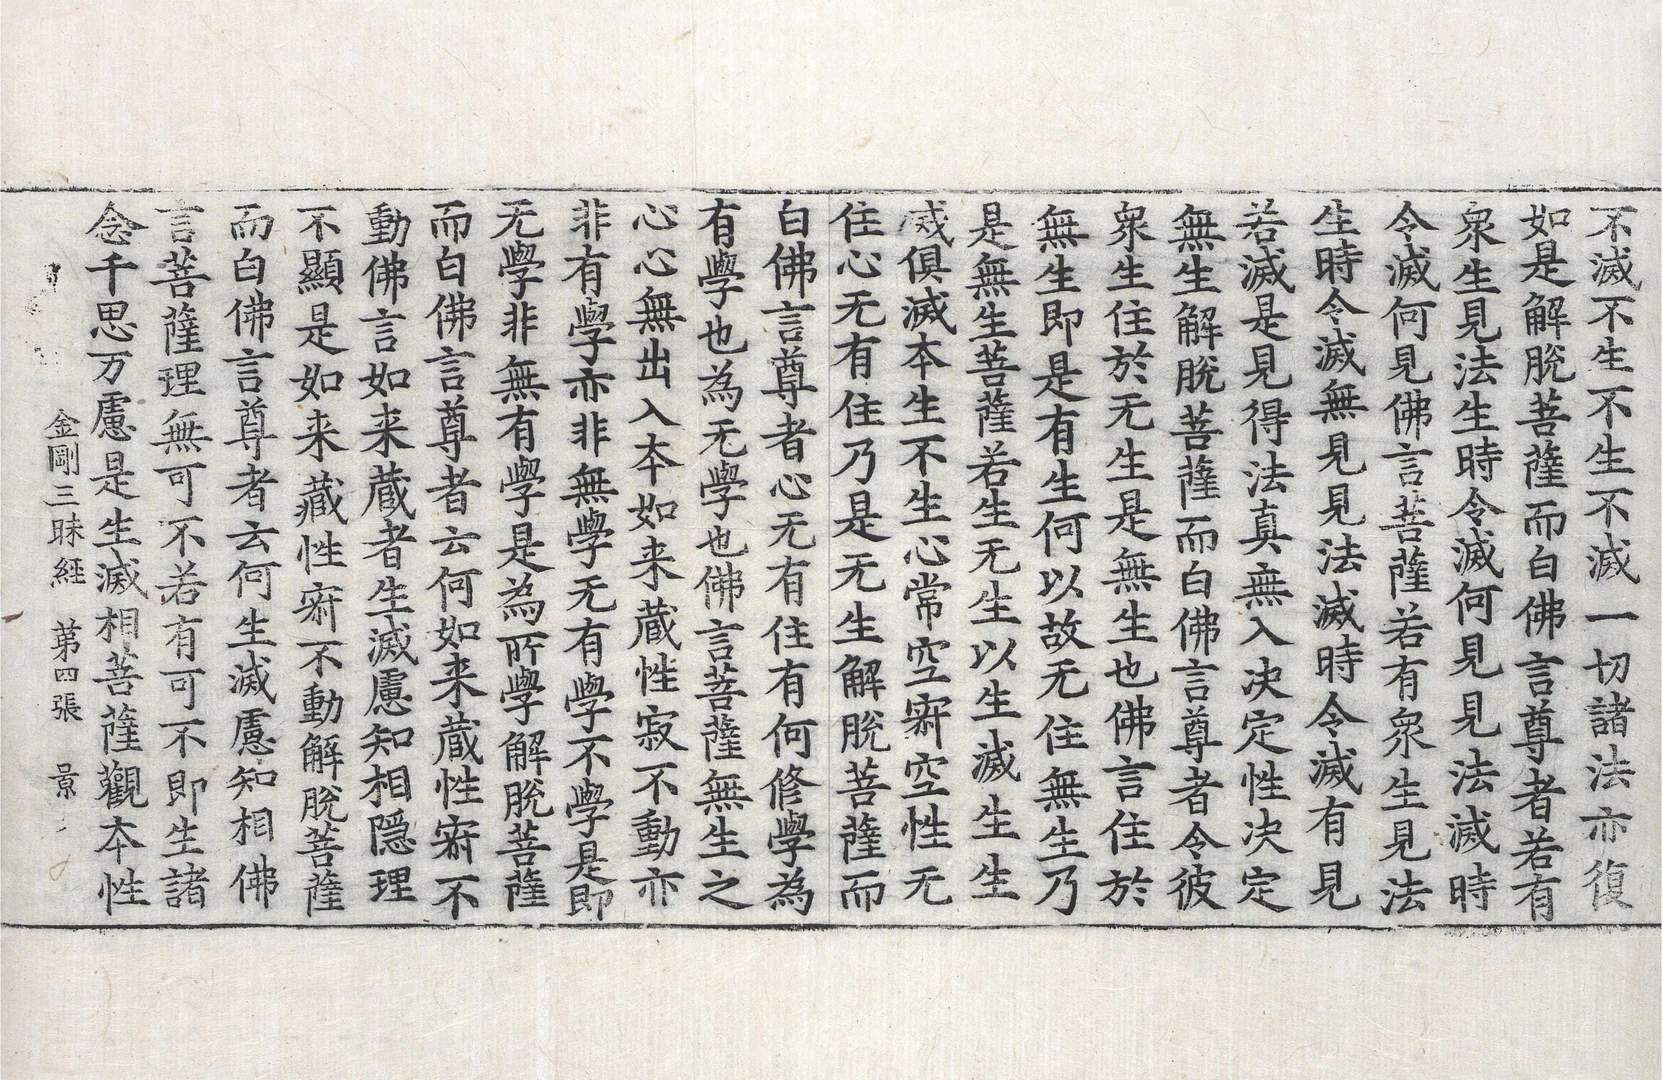 不滅不生不生不滅一切諸法亦復
如是解脫菩薩而白佛言尊者若有
衆生見法生時令滅何見見法滅時
令滅何見佛言菩薩若有衆生見法
生時令滅無見見法滅時令滅有見
若滅是見得法真無入决定性决定
無生解脫菩薩而白佛言尊者令彼
衆生住於无生是無生也佛言住於
無生即是有生何以故无住無生乃
是無生菩薩若生无生以生滅生生
滅俱滅本生不生心常空㝛空性无
住心无有住乃是无生解脫菩薩而
白佛言尊者心无有住有何修學為
有學也為无學也佛言菩薩無生之
心心無出入本如来藏性寂不動亦
非有學亦非無學无有學不學是即
无學非無有學是為所學解脫菩薩
而白佛言尊者云何如来藏性㝛不
動佛言如来藏者生滅慮知相隱理
不顯是如来藏性㝛不動解脫菩薩
而白佛言尊者云何生滅慮知相佛
言菩薩理無可不若有可不即生諸
念千思万慮是生滅相菩薩觀本性
金剛三昧経 苐四張 景